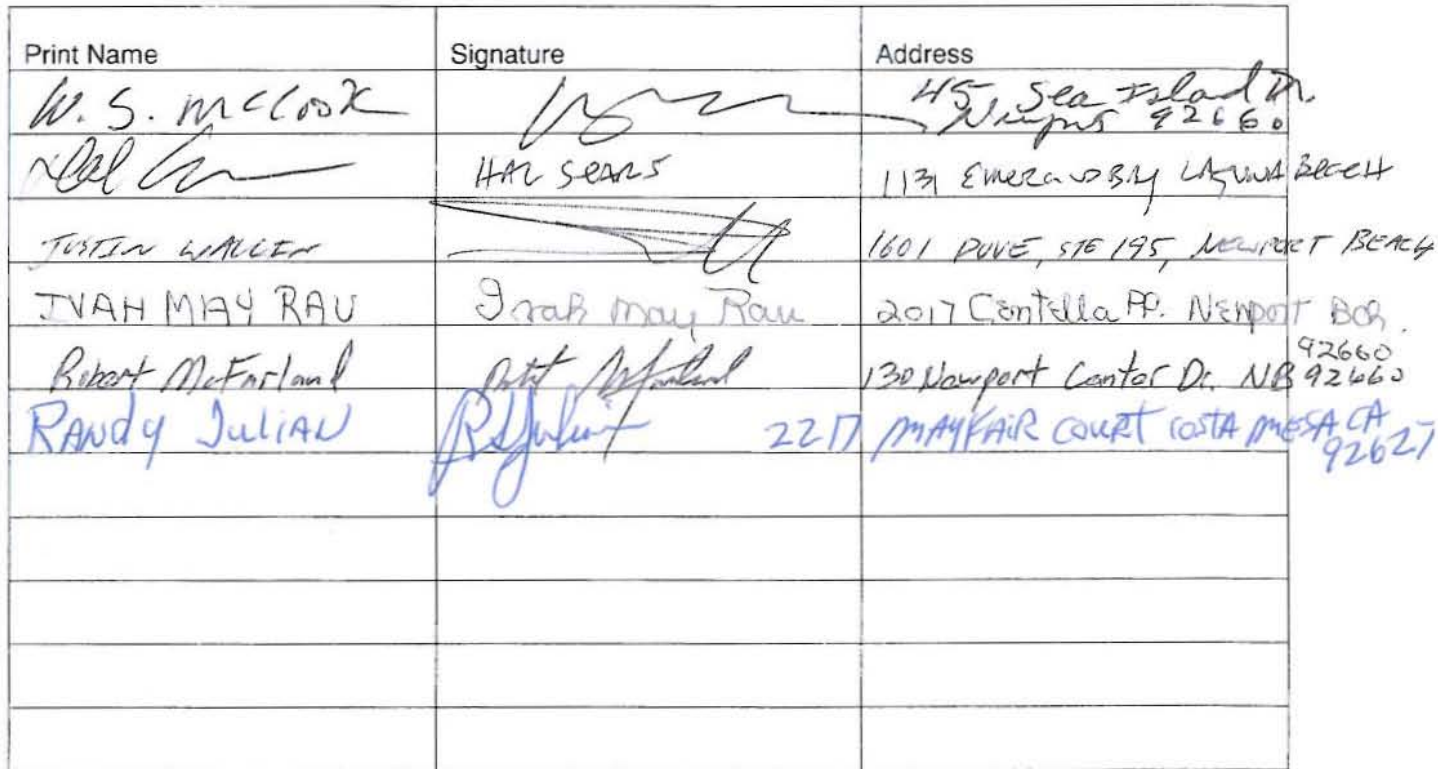 Print Name Signature Address
W. S. McCook 45 Sea Island Dr.
92660
HAL SEARS 1131 EMERALD BAY LAGUNA BEACH
JUSTIN WALLIN 1601 DOVE, STE 195, NEWPORT BEACH
IVAH MAY RAU Ivah May Rau 2017 Centella Pl. Newport Bch.
92660
Robert McFarland 130 Newport Center Dr. NB 92660
RANDY JULIAN 2217 MAYFAIR COURT COSTA MESA CA
92627